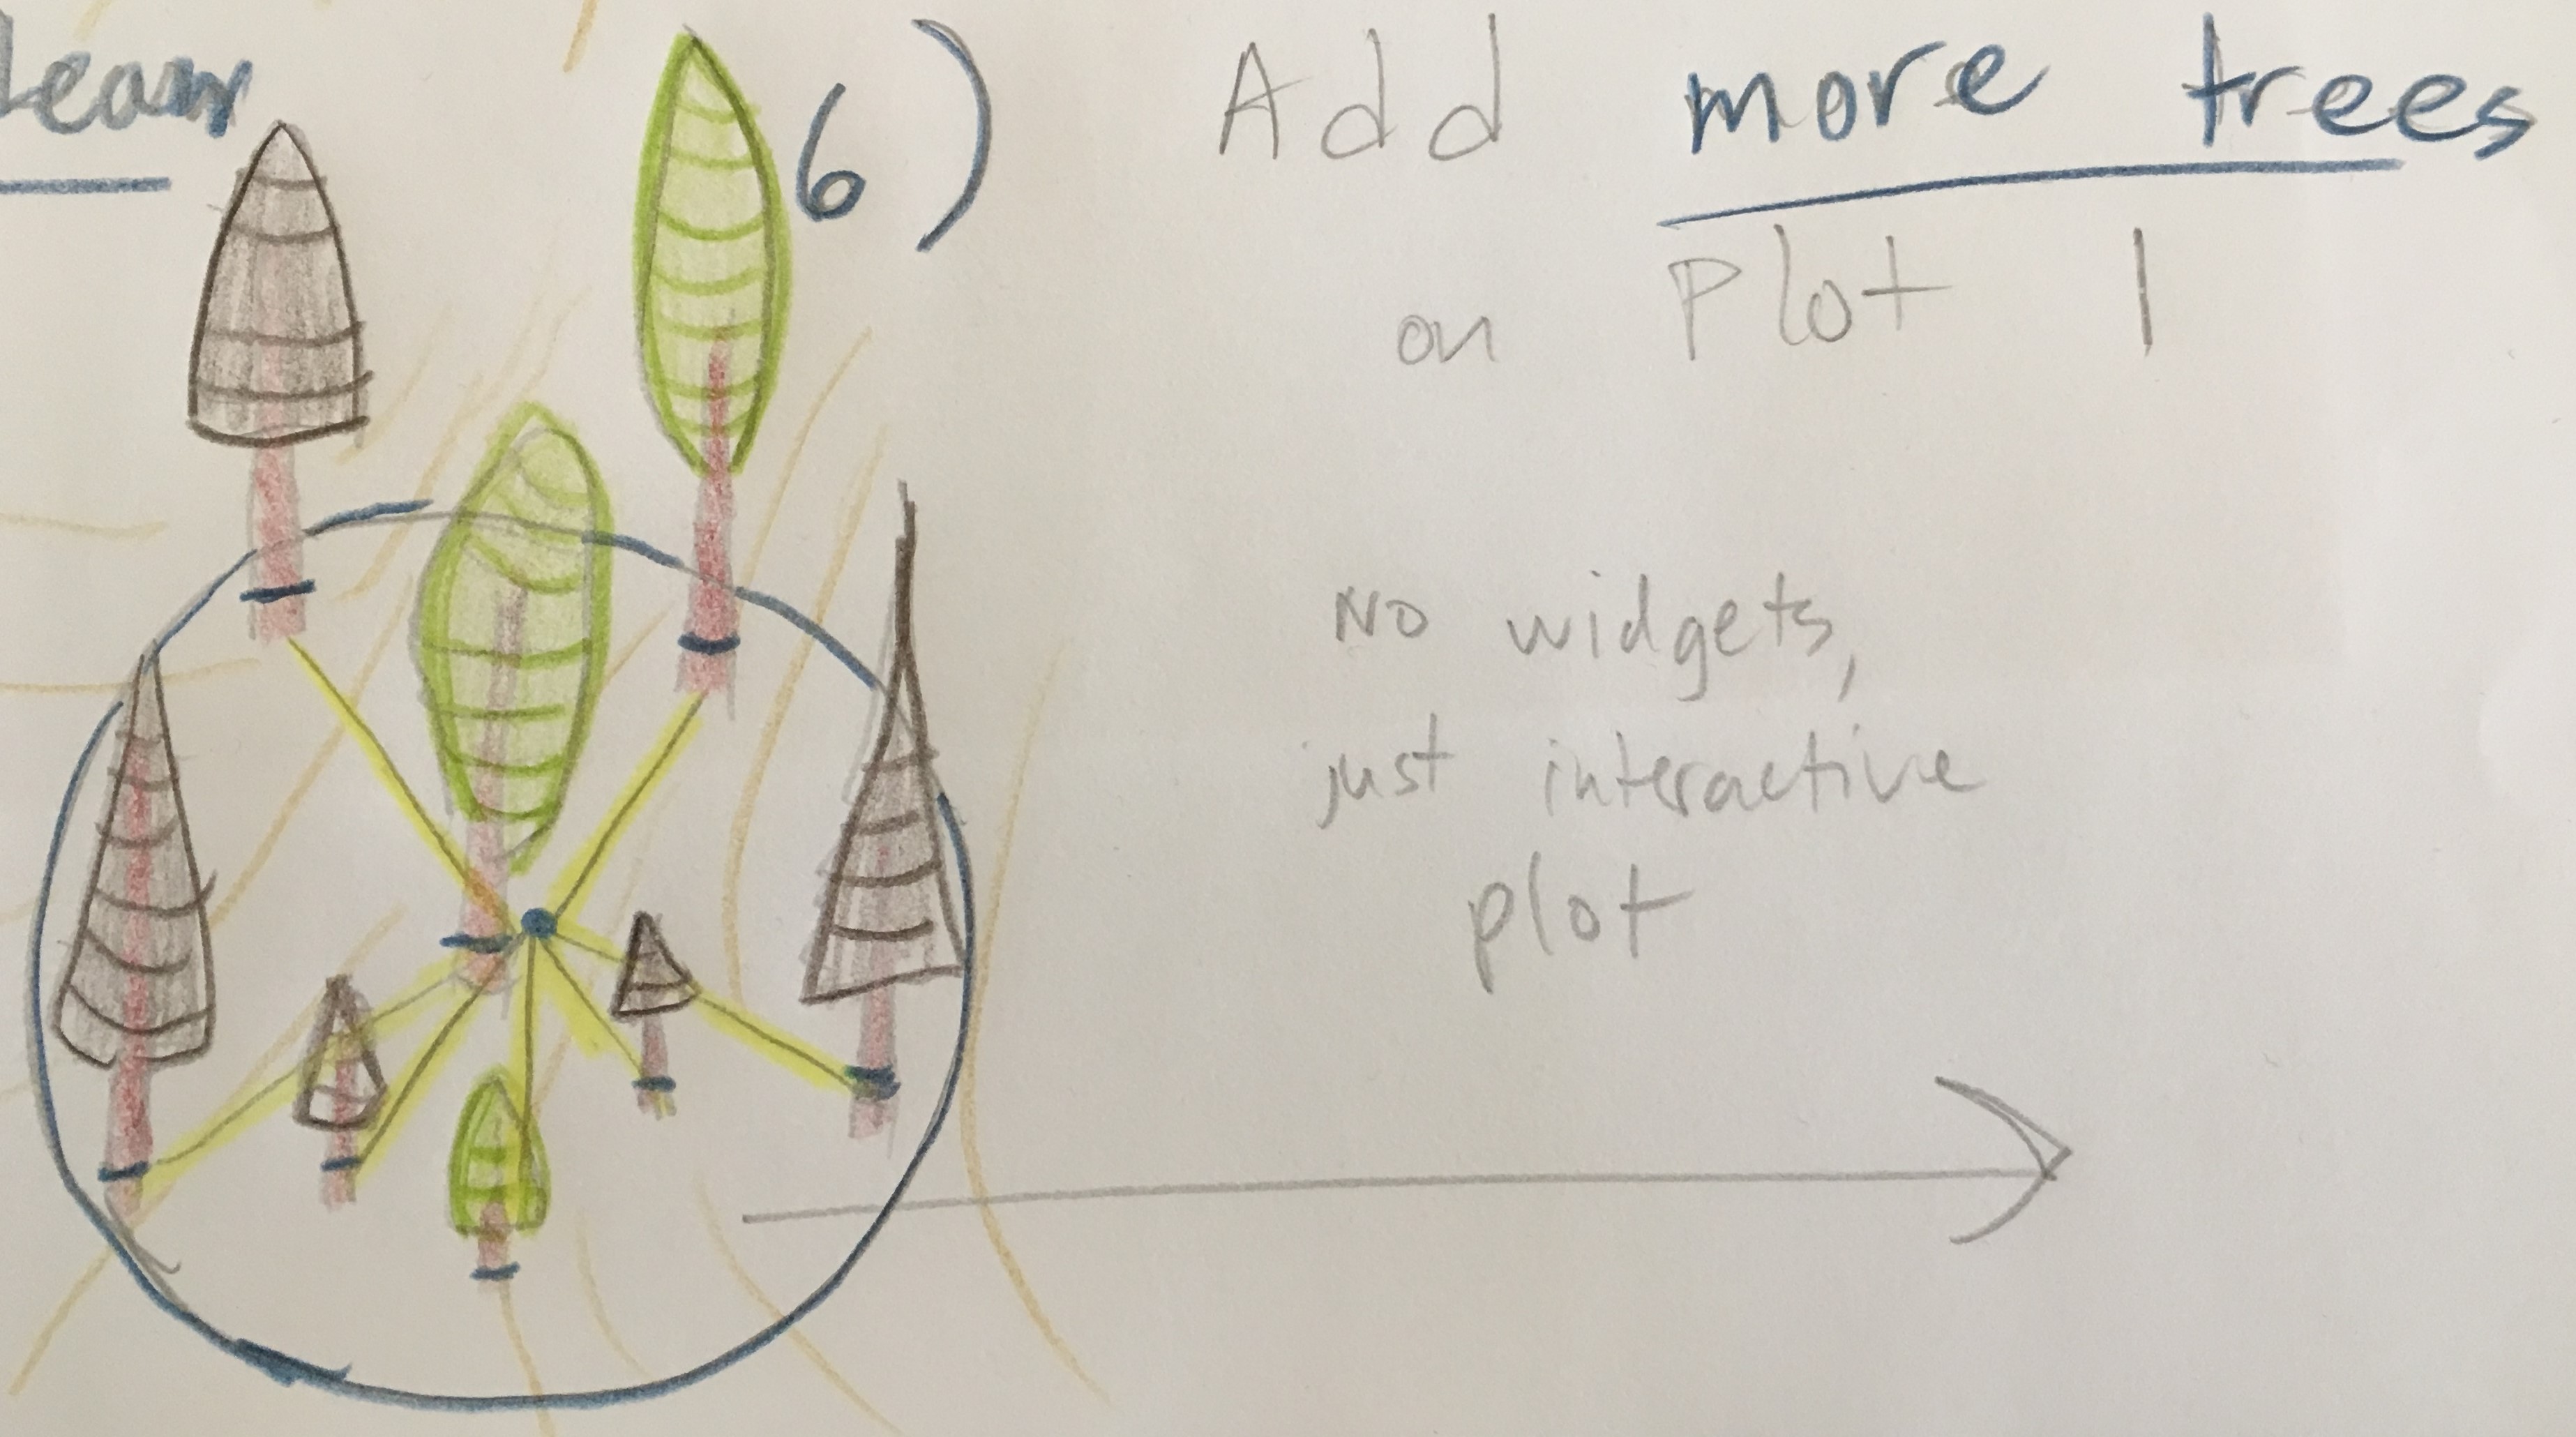 6) Add more trees
on Plot 1
No widgets,
just interactive
plot